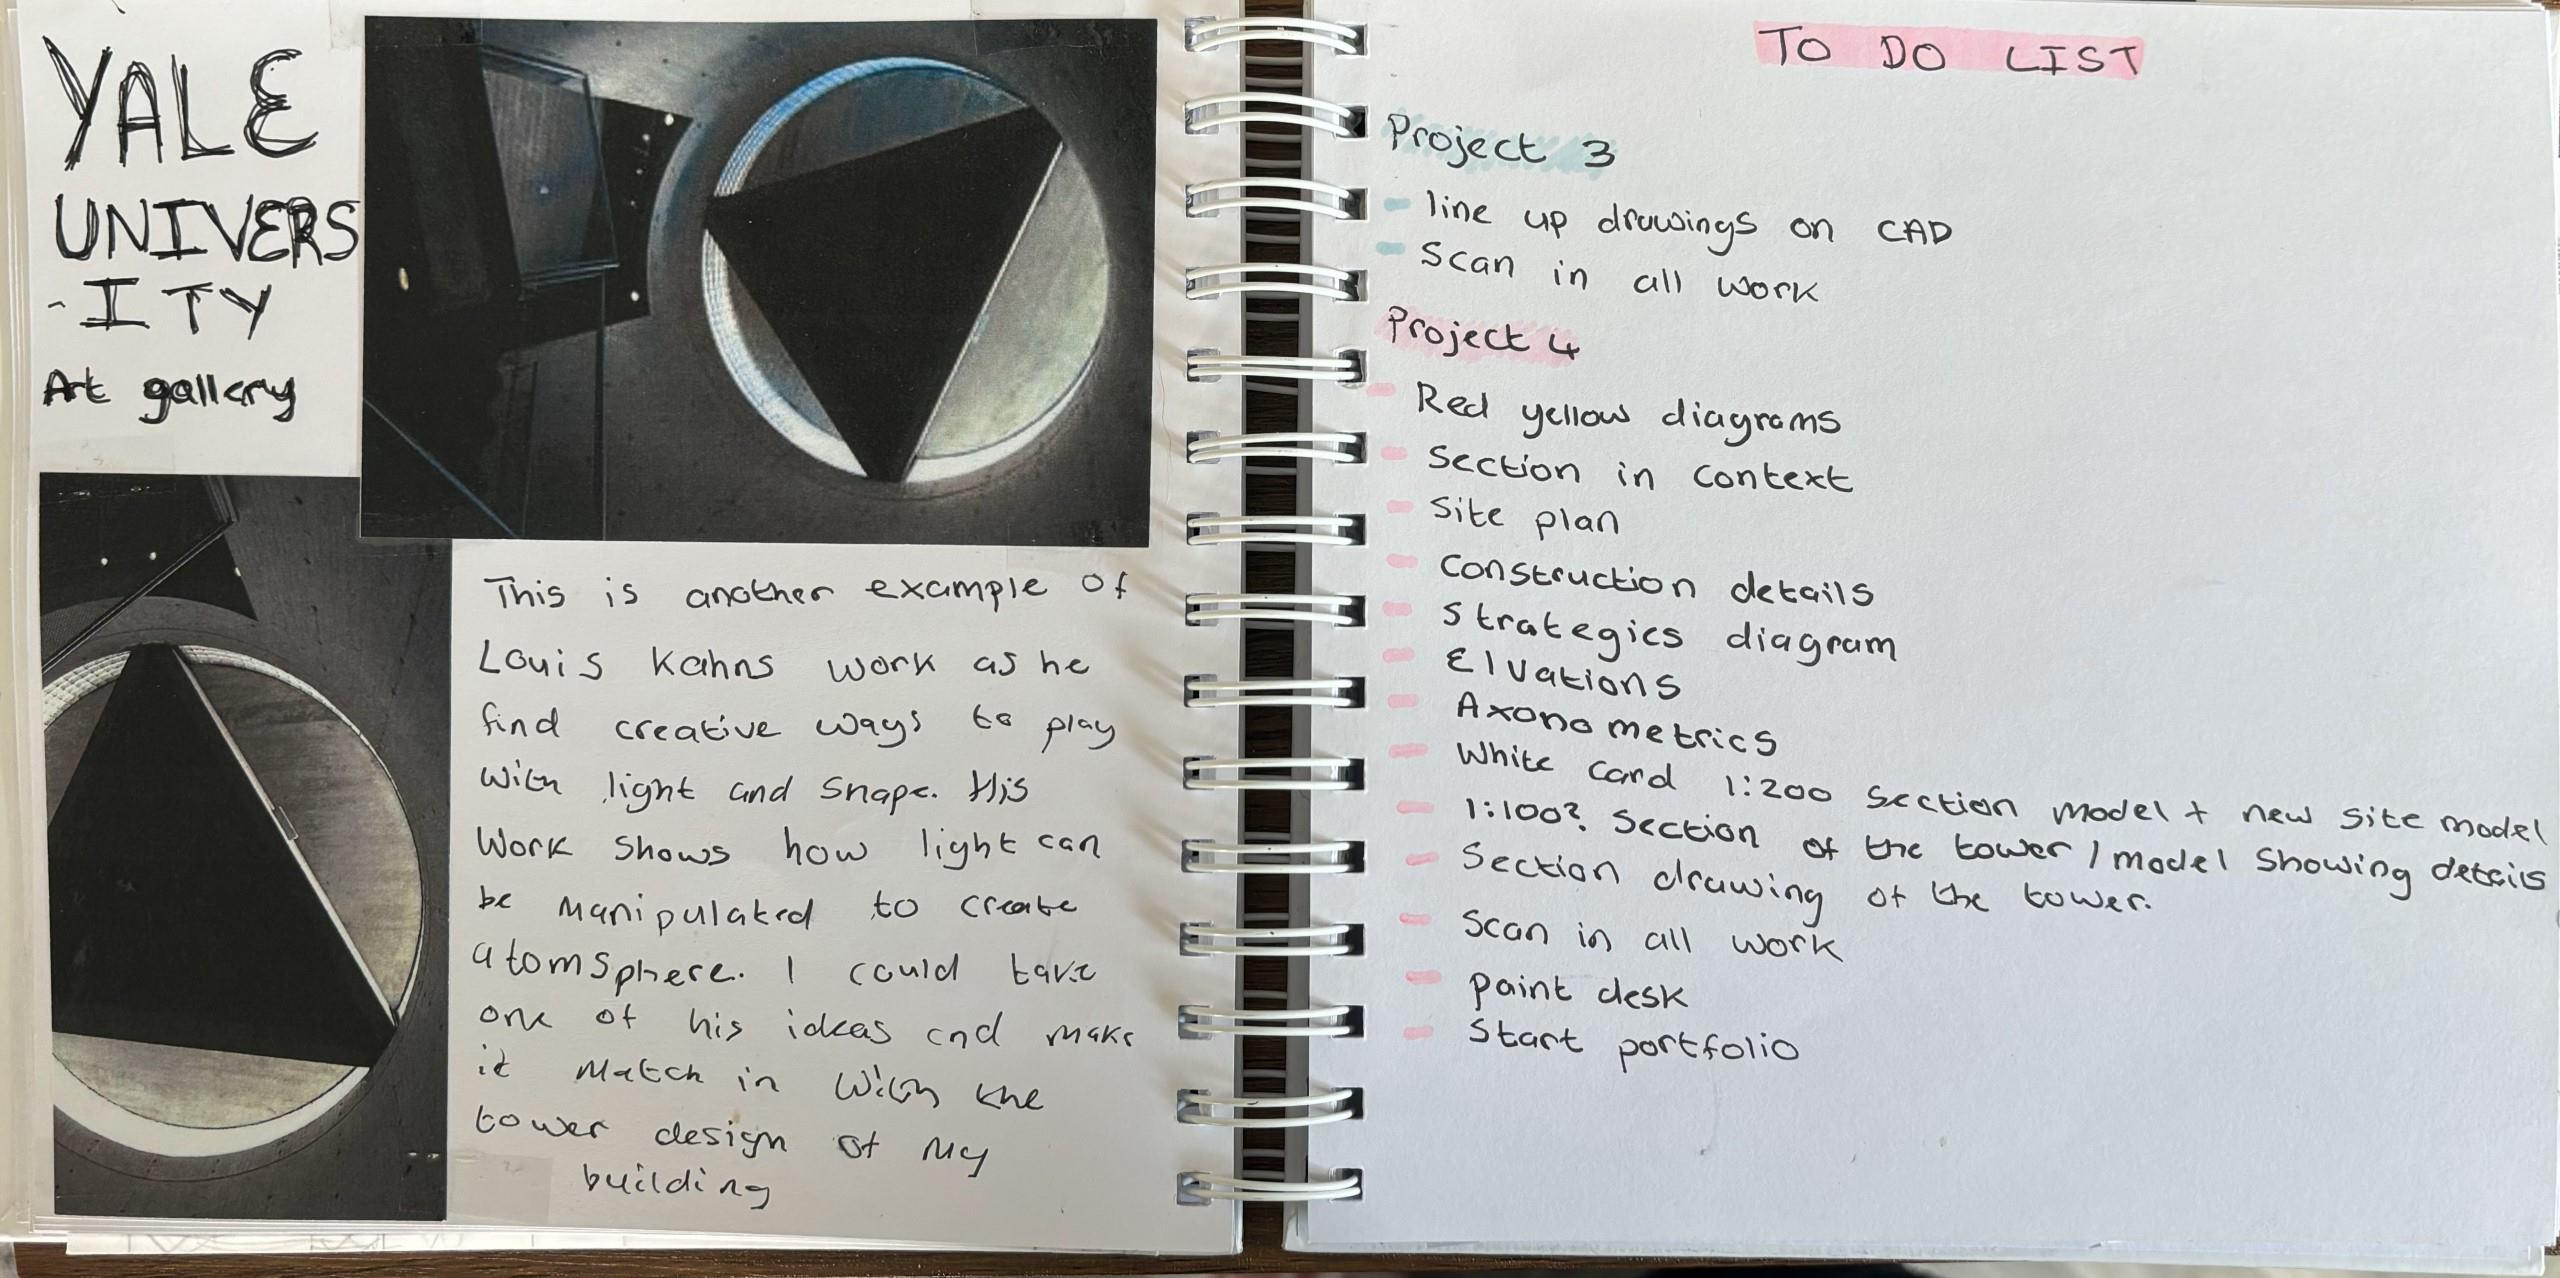 YALE
UNIVERS
-ITY
Art gallery
This is another example of
Louis Kahns work as he
find creative ways to play
with light and shape. His
work shows how light can
be manipulated to create
atomsphere. I could take
one of his ideas and make
it match in with the
tower design of my
building
TO DO LIST
Project 3
- line up drawings on CAD
- Scan in all work
Project 4
- Red yellow diagrams
- Section in context
- Site plan
- Construction details
- Strategies diagram
- Elvations
- Axonometrics
- White card 1:200 section model + new site model
- 1:100? Section of the tower / model showing details
- Section drawing of the tower.
- Scan in all work
- paint desk
- Start portfolio